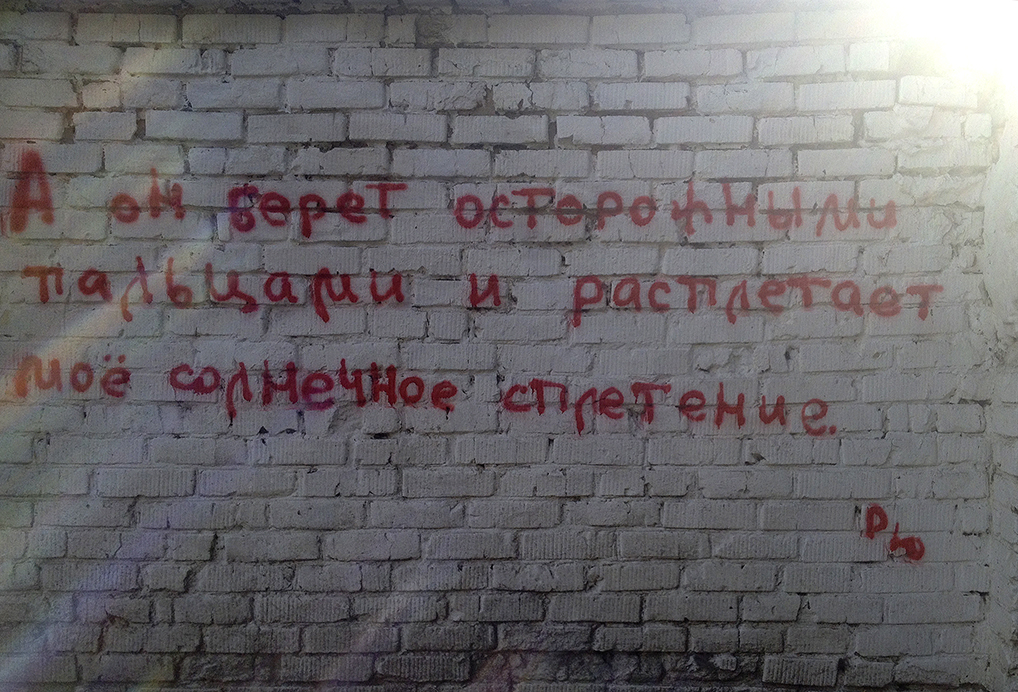 А он берет осторожными
пальцами и расплетает
моё солнечное сплетение.
Рю